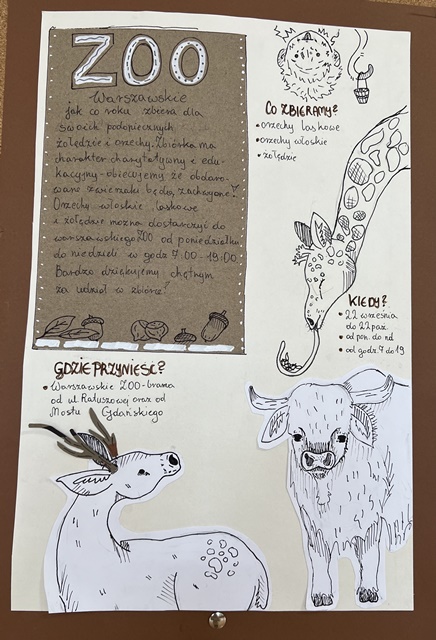 ZOO
Warszawskie
jak co roku zbiera dla
swoich podopiecznych
żołędzie i orzechy. Zbiórka ma
charakter charytatywny i edu-
kacyjny - obiecujemy że obdaro-
wane zwierzaki będą zachwycone!
Orzechy włoskie, laskowe
i żołędzie można dostarczyć do
warszawskiego ZOO od poniedziałku
do niedzieli w godz 7:00-19:00.
Bardzo dziękujemy chętnym
za udział w zbiórce!
CO ZBIERAMY?
• orzechy laskowe
• orzechy włoskie
• żołędzie
KIEDY?
• 22 września
do 22 paź.
• od pon. do nd
• od godz. 7 do 19
GDZIE PRZYNIEŚĆ?
• Warszawskie ZOO-brama
od ul. Ratuszowej oraz od
Mostu Gdańskiego